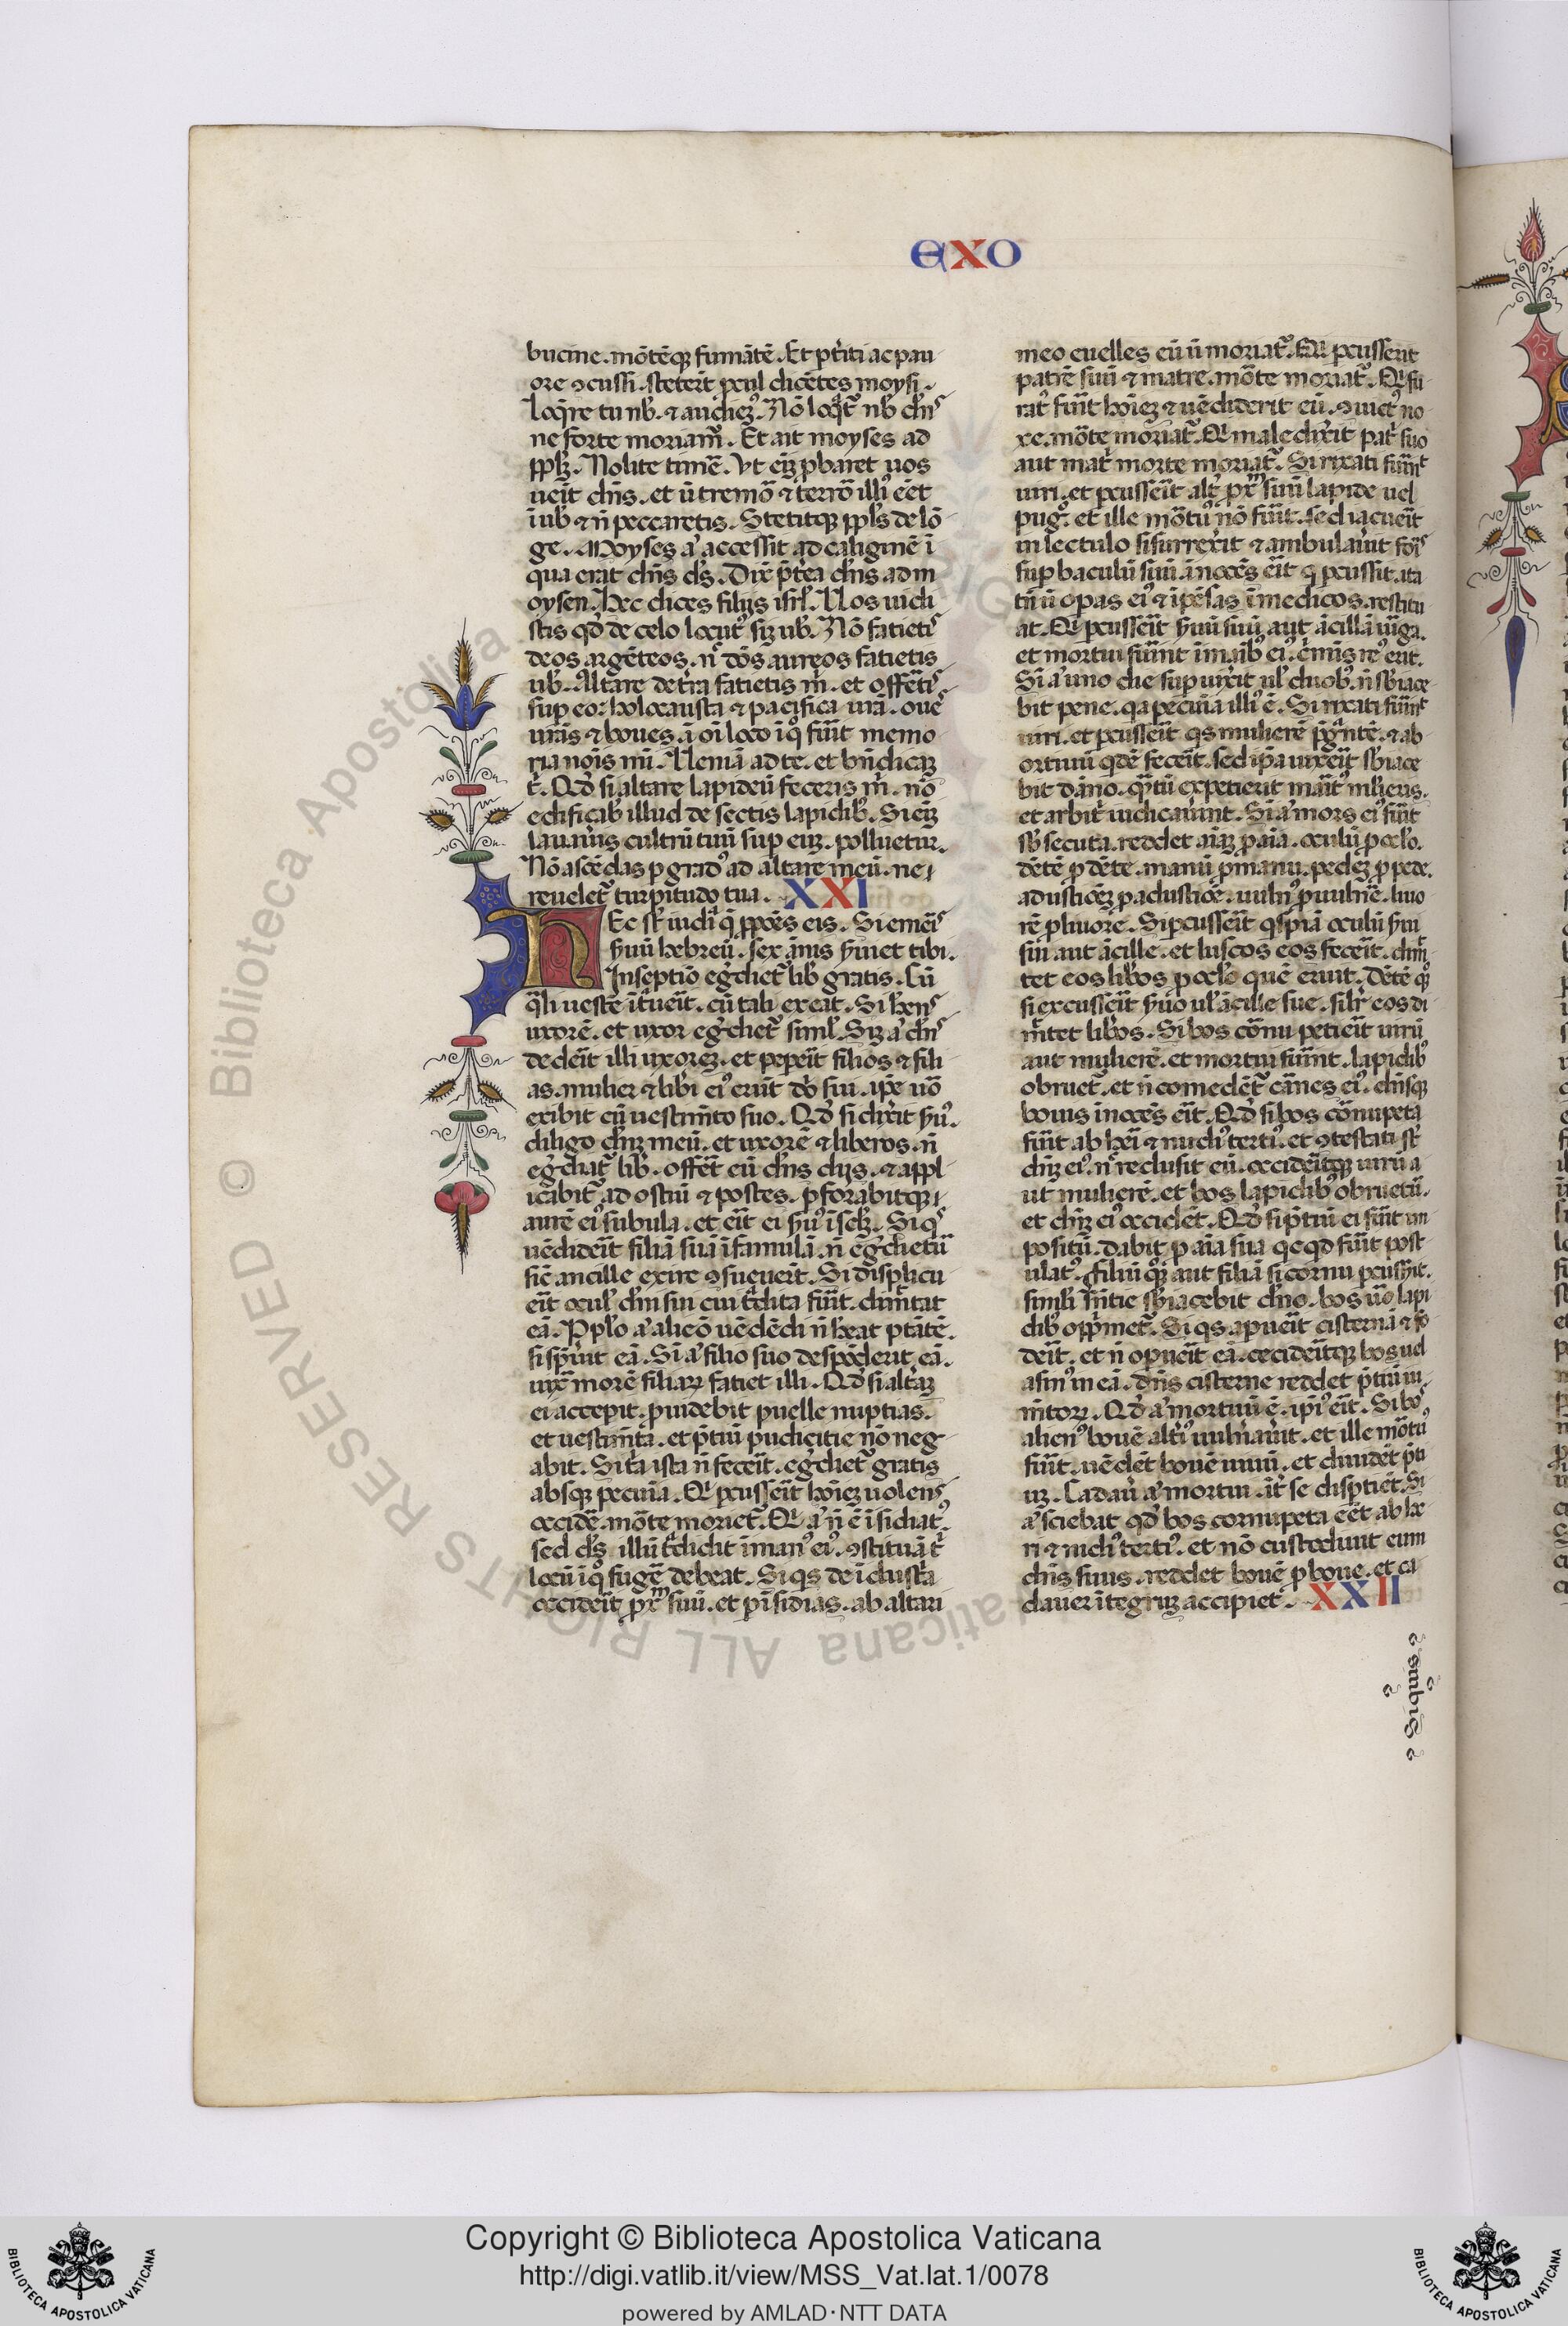 EXO
bucine. mōtēqꝫ fumātē. Et ꝑt̄iti ac pau
ore ꝯcussi. steter̄t ꝓcul dicētes moysi.
Loq̄re tu nb̄. ⁊ audieꝰ. Nō loq̄t᷑ nb̄ dn̄s
ne forte moriam᷑. Et ait moyses ad
ppl̄ꝫ. Nolite timē̄. Vt eīꝫ ꝓbaret uos
uēit dn̄s. et ū tremō ⁊ terrō illiꝰ eēt
ī ub̄ ⁊ n̄ peccaretis. Stetitqꝫ ppl̄s de lō
ge. Moyses aꝰ accessit ad caliginē ī
qua erat dn̄s ds̄. Dix̄ p̄t̄ea dn̄s ad m
oysen. Hec dices filijs isrl̄. Uos uidi
stis qd̄ de celo locutꝰ sīꝫ ub̄. Nō facietis
deos argēteos. n̄ dōs aureos facietis
ub̄. Altare de t̄ra facietis m̄. et offēt̄is
sup eoꝛ holocausta ⁊ pacifica ur̄a. oues
ur̄as ⁊ boues. ī oī loco ī qͦ fūit memo
ria nōis mī. Ueniā ad te. et bn̄dicaꝫ
t̄. Qd̄ si altare lapideū feceris m̄. nō
edificab̄ illud de sectis lapidib̄. Si eīꝫ
lauau̅is cultrū tuū sup eūꝫ. polluetur.
Nō ascēdas ꝑ gradꝰ ad altare meū. ne
reuelet᷑ turpitudo tua. XXI
HEc st̄ iudi̅ q̄ ꝓpoēs eis. Si emēis
ẜuū hebreū. sex ānis ẜuiet tibi.
In septīo eg̅diet᷑ lib̄ gratis. Cū
q̄li uestē īt̄uēit. cū tali exeat. Si hēns
uxorē. et uxor eg̅diet᷑ siml̄. Sīꝫ aꝰ dn̄s
dedēit illi uxoreꝫ. et pepēit filios ⁊ fili
as. mulier ⁊ lib̄i eiꝰ erūt dn̄i sui. ip̄e uō
exibit cū uestim̄to suo. Qd̄ si dix̄it ẜuꝰ.
diligo dn̄ꝫ meū. et uxorē ⁊ liberos. n̄
eg̅diat᷑ lib̄. offēt eū dn̄s dijs. ⁊ appl
icabit᷑ ad ostiū ⁊ postes. ꝑforabitqꝫ
aurē eiꝰ subula. et ēit ei ẜuꝰ ī secl̄ꝫ. Si qͥs
uēdidēit filiā suā ī famulā. n̄ eg̅dietū
sic̄ ancille exire ꝯsueuēit. Si displicu
ēit oculꝭ dn̄i sui cui t̄dita fūit. dim̄ttat
eā. Ppl̄o aꝰ aliēō uēdēdi n̄ h̄eat ptātē.
si sp̄u̅it eā. Si aꝰ filio suo despōd̄erit eā.
iuxͣ morē filiaꝝ faciet illi. Qd̄ si alt̄aꝫ
ei accepit. ꝓuidebit puelle nuptias.
et uestim̄ta. et p̄tiū pudicitie nō neg
abit. Si t̄a ista n̄ fecēit. eg̅diet᷑ gratis
absqꝫ pecūia. Qͥ ꝑcussēit hōieꝫ uolens
occidē. mōte moriet᷑. Qͥ aꝰ n̄ ē īsidiatꝰ
sed ds̄ illū t̄didit ī manꝰ eiꝰ. ꝯstituā t̄
locū ī qͦ fugē debeat. Si qͥs de īdust̄a
occidēit ꝓxͫ suū. et ꝑ īsidias. ab altari
meo euelles eū ū moriat᷑. Qͥ ꝑcusserit
patrē suū ⁊ matrē. mōte moriat᷑. Qͥ fu
ratꝰ fūit hōieꝫ ⁊ uēdiderit eū. ꝯuictꝰ no
xe. mōte moriat᷑. Qͥ maledix̄it pat̄ suo
aut mat̄ morte moriat᷑. Si rixati fūint
uiri. et ꝑcussēit alt̄ ꝓxͫ suū lapide uel
pugͦ. et ille mōtuꝰ nō fūit. sed iacuēit
in lectulo si surrex̄it ⁊ ambulau̅it foris
sup baculū suū. īnocēs ēit qͥ ꝑcussit. ita
tn̄ ū opas eiꝰ ⁊ īpēsas ī medicos. restitu
at. Qͥ ꝑcussēit ẜuū suū aut ācillā uīga.
et mortui fūint ī man̄ib̄ eiꝰ. cm̄is reꝰ erit.
Si aꝰ uno die sup uix̄it ul̄ duob̄. n̄ sb̄iace
bit pene. qͣ pecūia illiꝰ ē. Si rixati fūint
uiri. et ꝑcussēit qͥs mulierē p̄gͣntē. ⁊ ab
ortiuū qͥdē fecēit. sed ip̄a uixēit. sb̄iace
bit dāno. qͣtū expetierit maīt mlieris.
et arbit̄ iudicau̅int. Si aꝰ mors eiꝰ fūit
sb̄ secuta. reddet aīaꝫ ꝓ aīa. oculū ꝓ oc̄lo.
dētē ꝓ dēte. manū ꝓ manu. pedeꝫ ꝓ pede.
adustiōeꝫ ꝓ adustiōe. uuln̄ꝰ ꝓ uuln̄e. liuo
rē ꝓ liuore. Si ꝑcussēit qͥspiā oculū ẜui
sui aut ācille. et luscos eos fecēit. dim̄
tet eos lib̄os ꝓ oc̄lo quē eruit. Dētē qͦꝫ
si excussēit ẜuo ul̄ ācille sue. silr̄ eos di
m̄tet lib̄os. Si bos cōnu petiēit uirū
aut mulierē. et mortui fūint. lapidib̄
obruet᷑. et n̄ comedēt᷑ cānes eiꝰ. dn̄sqꝫ
bouis īnocēs ēit. Qd̄ si bos cōnupeta
fūit ab hēi ⁊ nudiꝰ tertiꝰ. et ꝯtestati st̄
dn̄ꝫ eiꝰ. n̄ reclusit eū. occidēitqꝫ uirū a
ut mulierē. et bos lapidib̄ obruetū.
et dn̄ꝫ eiꝰ occidēt. Qd̄ si p̄tiū ei fūit im
positū. dabit ꝓ aīa sua qͥcqd̄ fūit post
ulatꝰ. Filiū qͦꝫ aut filiā si cornu ꝑcuss̄it.
simili sn̄tie sb̄iacebit dn̄o. bos uō lapi
dib̄ opp̄imet᷑. Si qͥs apuēit cisternā ⁊ fo
dēit. et n̄ opuēit eā. cecidēitqꝫ bos uel
asinꝰ in eā. dn̄s cisterne reddet p̄tiū iu
m̄toꝝ. Qd̄ aꝰ mortuū ē. ipiꝰ ēit. Si bos
alienꝰ bouē alt̄iꝰ uuln̄au̅it. et ille mōtuꝰ
fūit. uēdēt bouē uiuū. et diuidēt p̄ti
uꝫ. Cadau̅ aꝰ mortui. īt̄ se disp̄tiēt. Si
aꝰ sciebat qd̄ bos cornupeta eēt ab he
ri ⁊ nudiꝰ tertiꝰ. et nō custodiuit eum
dn̄s suus. reddet bouē ꝓ boue. et ca
dauer ītegrūꝫ accipiet. XXII
Siqͥis
Copyright © Biblioteca Apostolica Vaticana
http://digi.vatlib.it/view/MSS_Vat.lat.1/0078
powered by AMLAD·NTT DATA
© Biblioteca Apostolica Vaticana ALL RIGHTS RESERVED
BIBLIOTECA APOSTOLICA VATICANA
BIBLIOTECA APOSTOLICA VATICANA